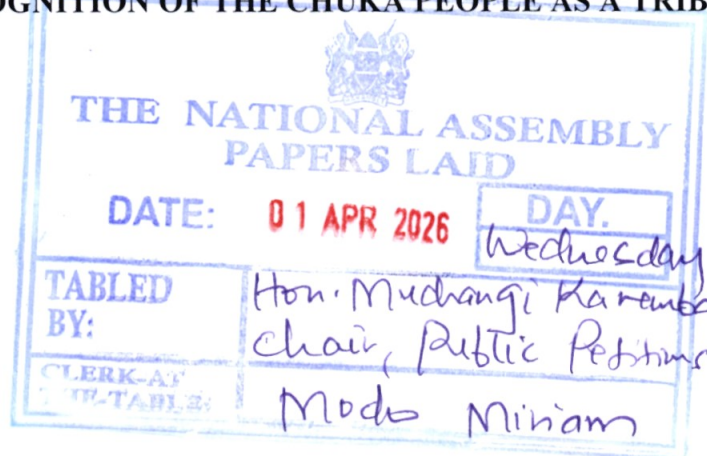 OGNITION OF THE CHUKA PEOPLE AS A TRIB
THE NATIONAL ASSEMBLY
PAPERS LAID
DATE: 01 APR 2026 DAY.
Wednesday
TABLED BY: Hon. Muchangi Karemba
Chair, Public Petitions
CLERK-AT THE-TABLE: Miriam